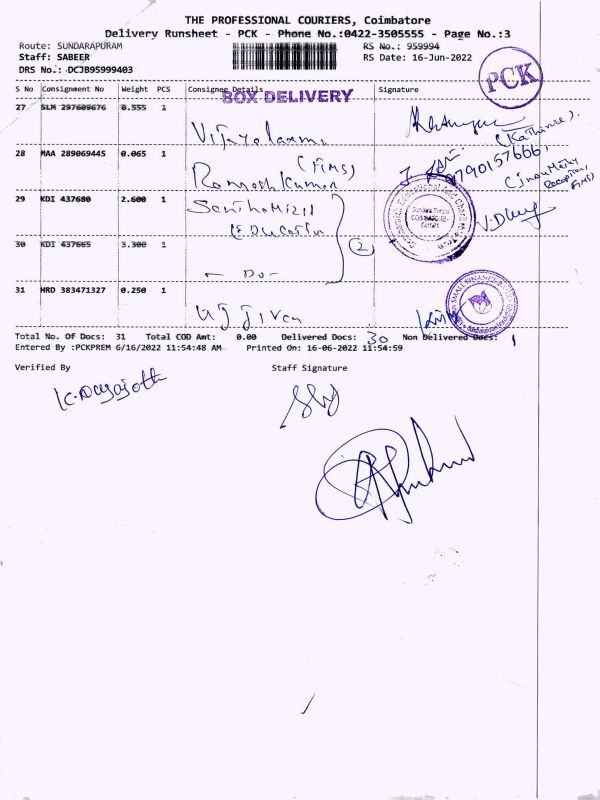 THE PROFESSIONAL COURIERS, Coimbatore
Delivery Runsheet - PCK - Phone No.:0422-3505555 - Page No.:3
Route: SUNDARAPURAM RS No.: 959994
Staff: SABEER RS Date: 16-Jun-2022
DRS No.: DCJB95999403
PCK
S No Consignment No Weight PCS Consignee Details Signature
BOX DELIVERY
27 SLM 297609676 0.555 1
Vijayalaxmi
(Katharine).
28 MAA 289069445 0.065 1
(FIMS) 9790157666,
Ramesh Kumar
29 KDI 437680 2.600 1
Education
(2)
30 KDI 437665 3.300 1
- Do -
31 HRD 383471327 0.250 1
SMALL FINANCE B
Total No. Of Docs: 31 Total COD Amt: 0.00 Delivered Docs: 30 Non Delivered Docs: 1
Entered By :PCKPREM 6/16/2022 11:54:48 AM Printed On: 16-06-2022 11:54:59
Verified By Staff Signature